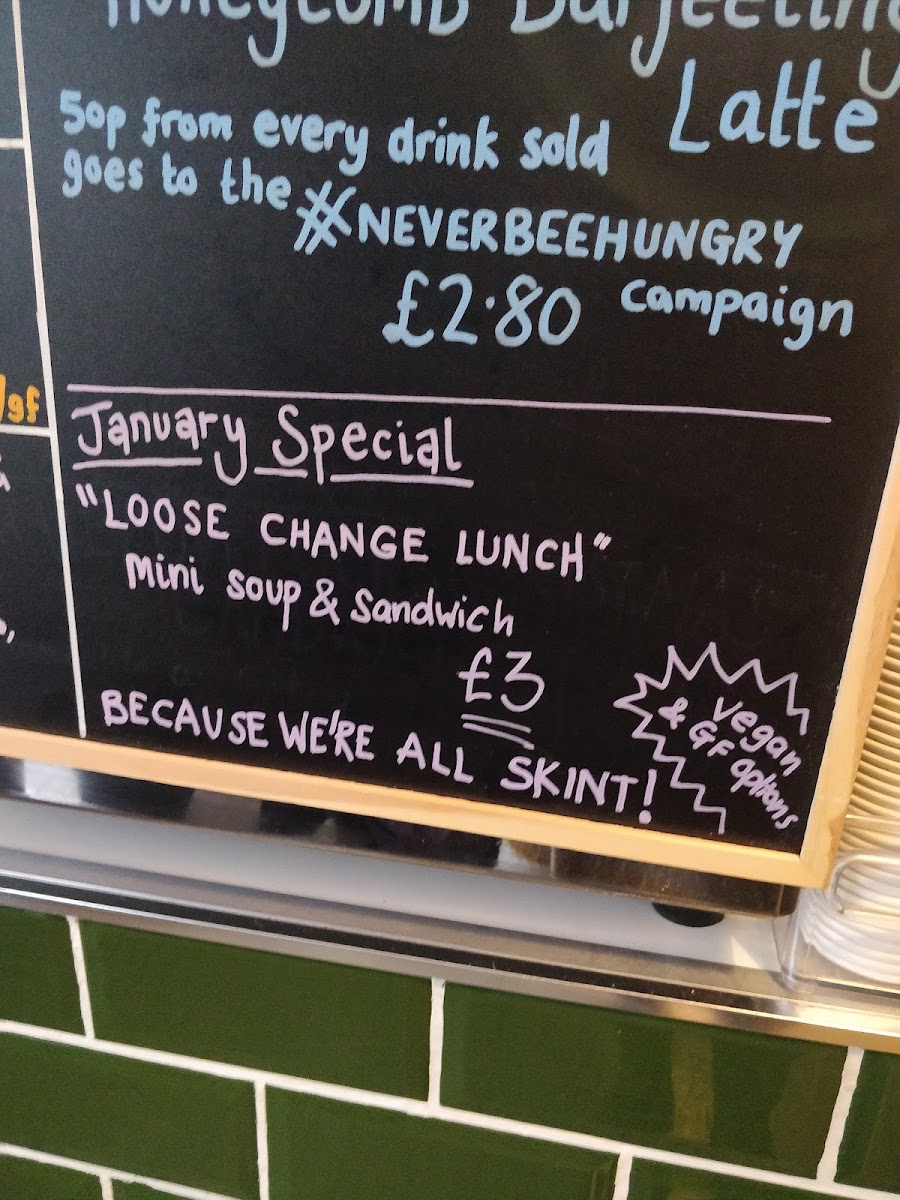 Honeycomb Darjeeling
Latte
50p from every drink sold
goes to the
#NEVERBEEHUNGRY
campaign
£2.80
/gf
January Special
"LOOSE CHANGE LUNCH"
Mini soup & Sandwich
£3
BECAUSE WE'RE ALL SKINT!
vegan
& GF options